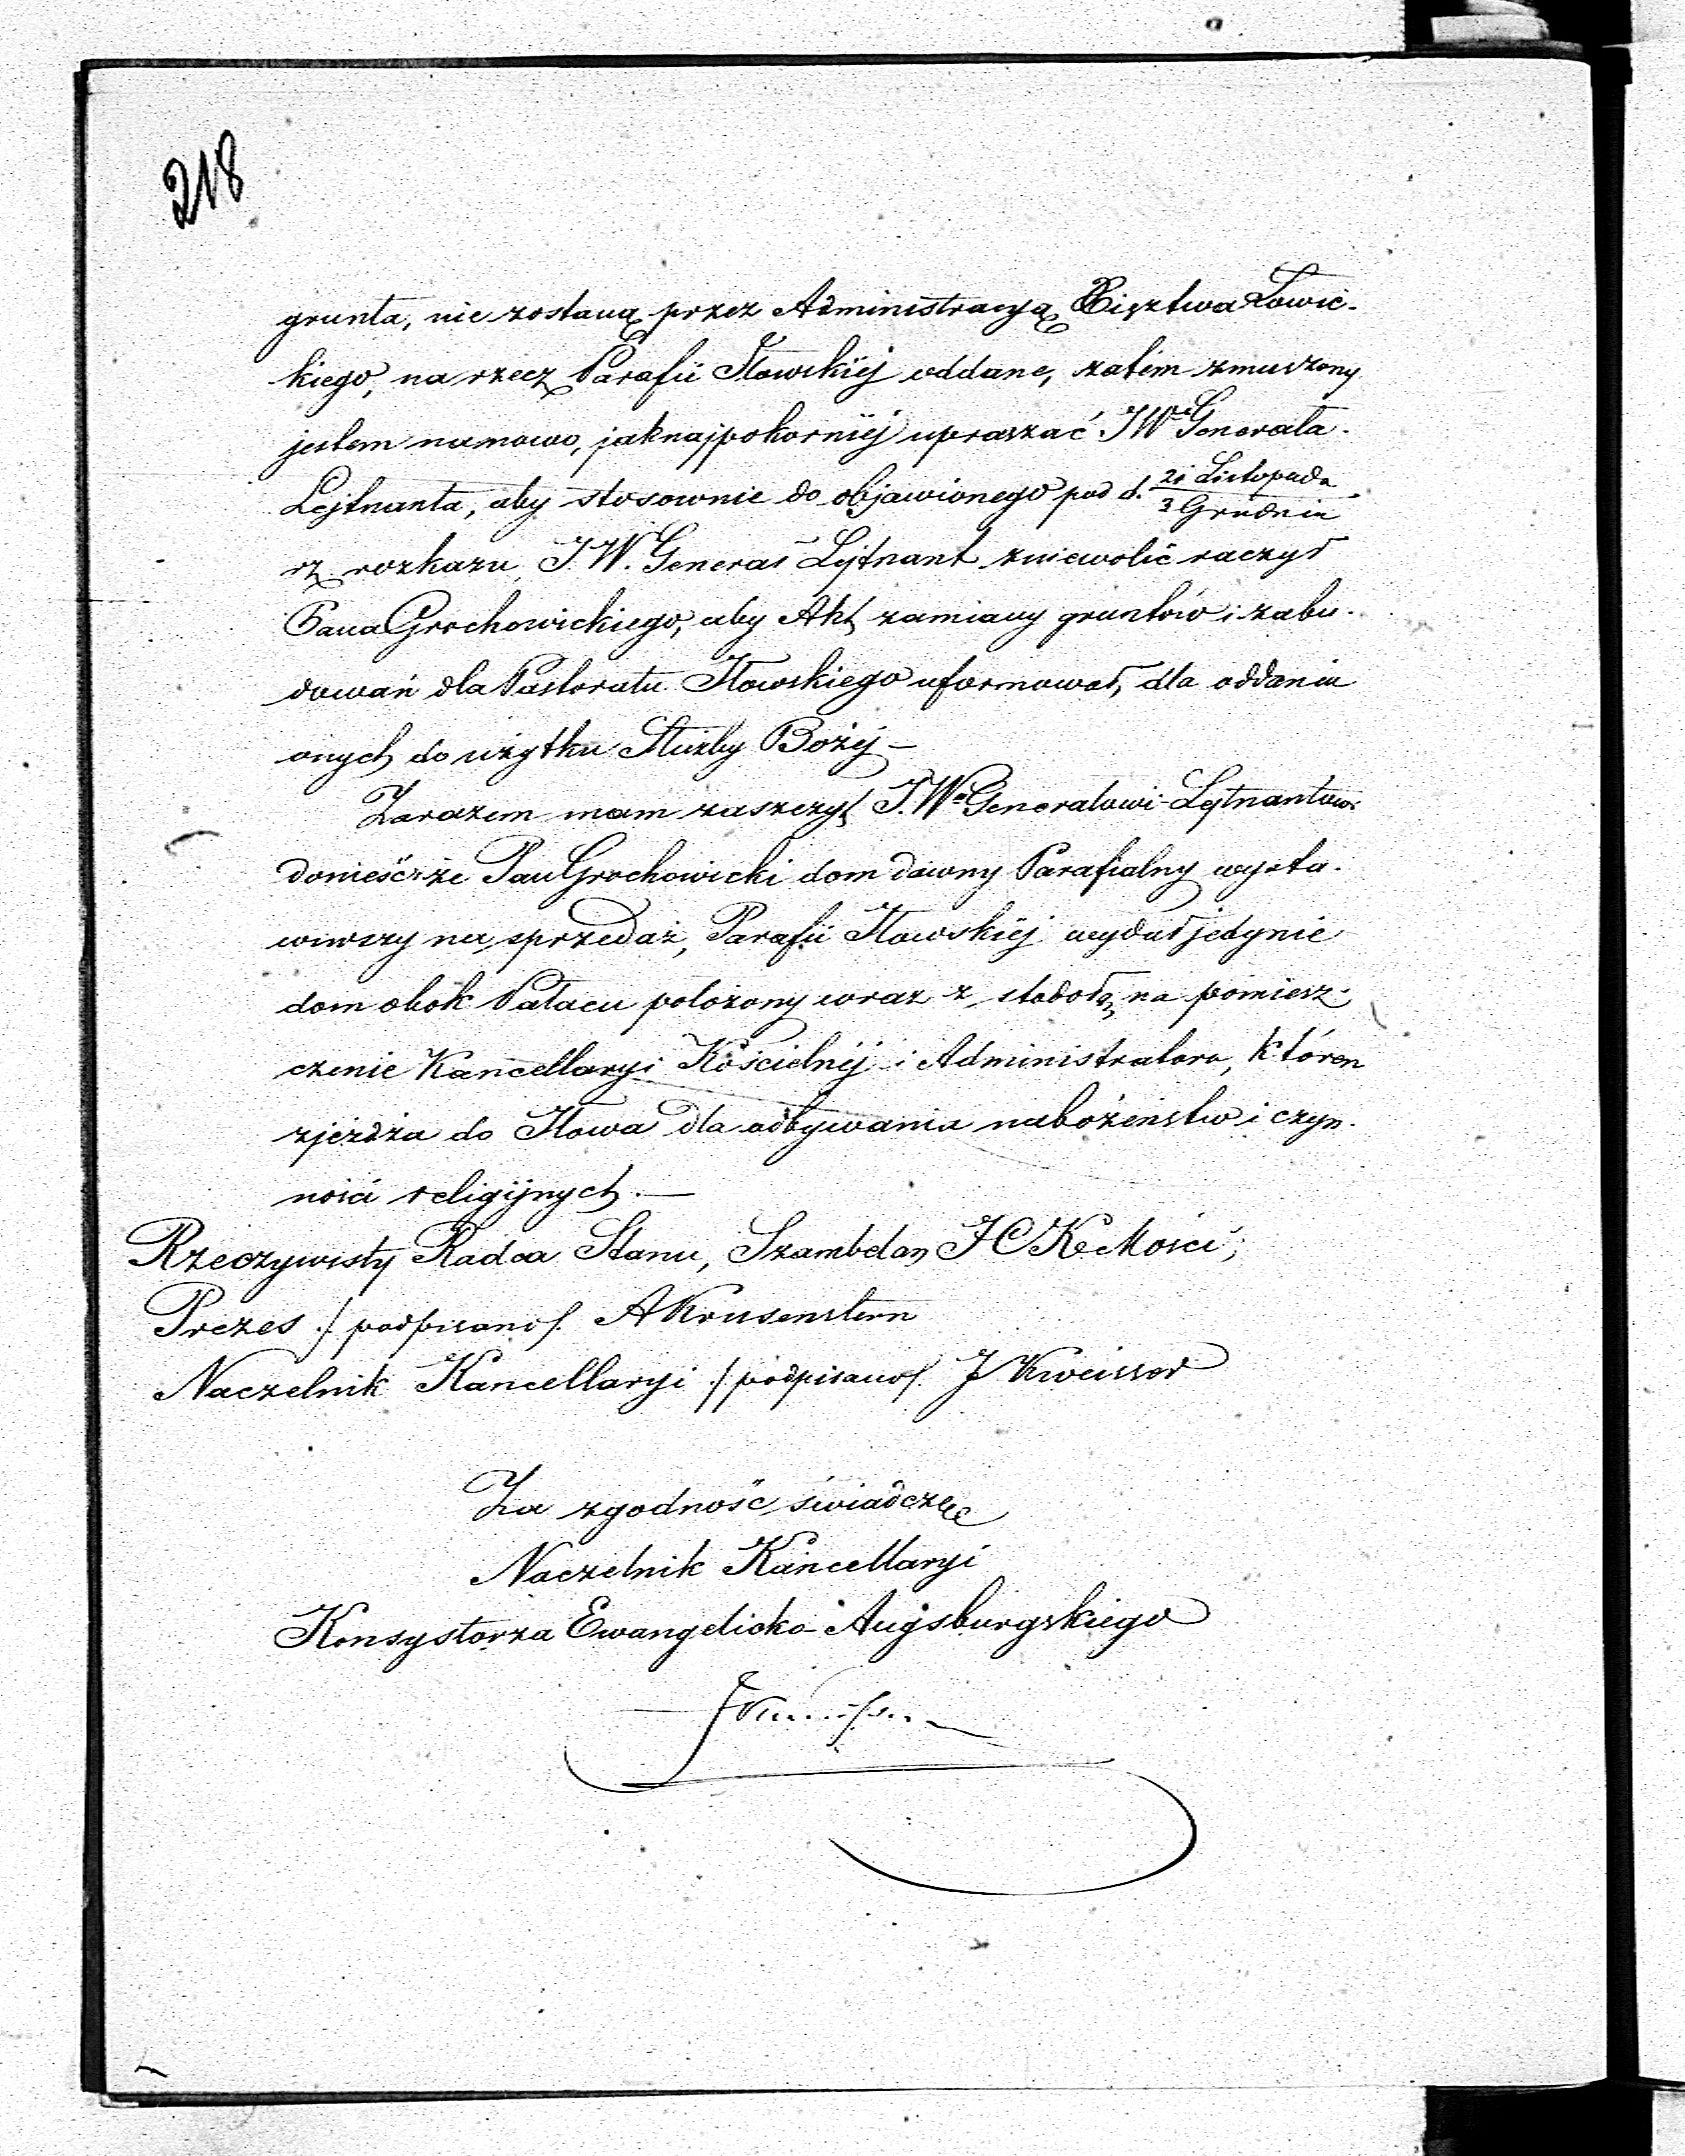 218
grunta, nie zostaną przez Administracyą Xięztwa Łowic-
kiego, na rzecz Parafii Iłowskiéj oddane, zatém zmuszony
jestem numowo, jaknajpokorniéj upraszać JW Generała-
Lejtnanta, aby stosownie do objawionego pod d. 21 Listopada / 3 Grudnia
rz rozkazu, J.W. Generał Lejtnant zniewolić raczył
Pana Grochowickiego, aby Akt zamiany gruntów i zabu-
dowań dla Pastoratu Iłowskiego uformował, dla oddania
onych do użytku Służby Bożéj –
Zarazem mam zaszczyt J.W. Generałowi-Lejtnantowi
donieść że Pan Grochowicki dom dawny Parafialny wysta-
wiwszy na sprzedaż, Parafii Iłowskiéj wydał jedynie
dom obok Pałacu położony wraz z stodołą na pomiesz-
czenie Kancellaryi Kościelnéj i Administratora, któren
zjeżdża do Iłowa dla odbywania nabożeństw i czyn-
ności religijnych. —
Rzeczywisty Radca Stanu, Szambelan JCKMości,
Prezes /podpisano/ AKrusenstern
Naczelnik Kancellaryi /podpisano/ J Kweisser
Za zgodność świadczę
Naczelnik Kancellaryi
Konsystorza Ewangelicko-Augsburgskiego